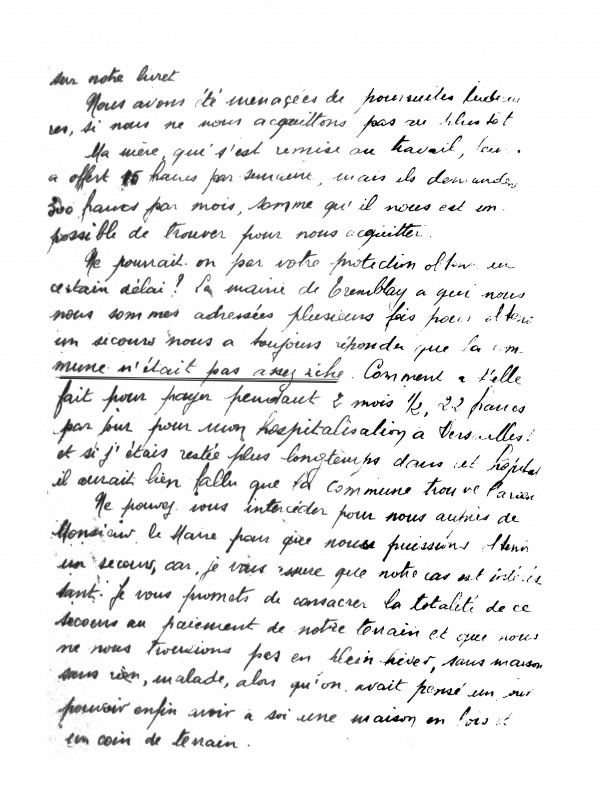 sur notre livret
Nous avons été menagées de poursuites
res, si nous ne nous acquittons pas au plus tôt
Ma mère, qui s'est remise au travail,
a offert 15 francs par semaine, mais ils demandent
300 francs par mois, somme qu'il nous est im-
possible de trouver pour nous acquitter.
Ne pourrait-on par votre protection obtenir un
certain délai? La mairie de Tremblay a qui nous
nous sommes adressées plusieurs fois pour obtenir
un secours nous a toujours répondu que la com-
mune n'était pas assez riche. Comment a t'elle
fait pour payer pendant 2 mois 1/2, 22 francs
par jour pour mon hospitalisation a Versailles!
et si j'étais restée plus longtemps dans cet hôpital
il aurait bien fallu que la commune trouve l'argent
Ne pouvez vous intercéder pour nous auprès de
Monsieur le Maire pour que nous puissions obtenir
un secours, car, je vous assure que notre cas est intéres-
sant. Je vous promets de consacrer la totalité de ce
secours au paiement de notre terrain et que nous
ne nous trouvions pas en plein hiver, sans maison
sans rien, malade, alors qu'on avait pensé un jour
pouvoir enfin avoir a soi une maison en bois et
un coin de terrain.